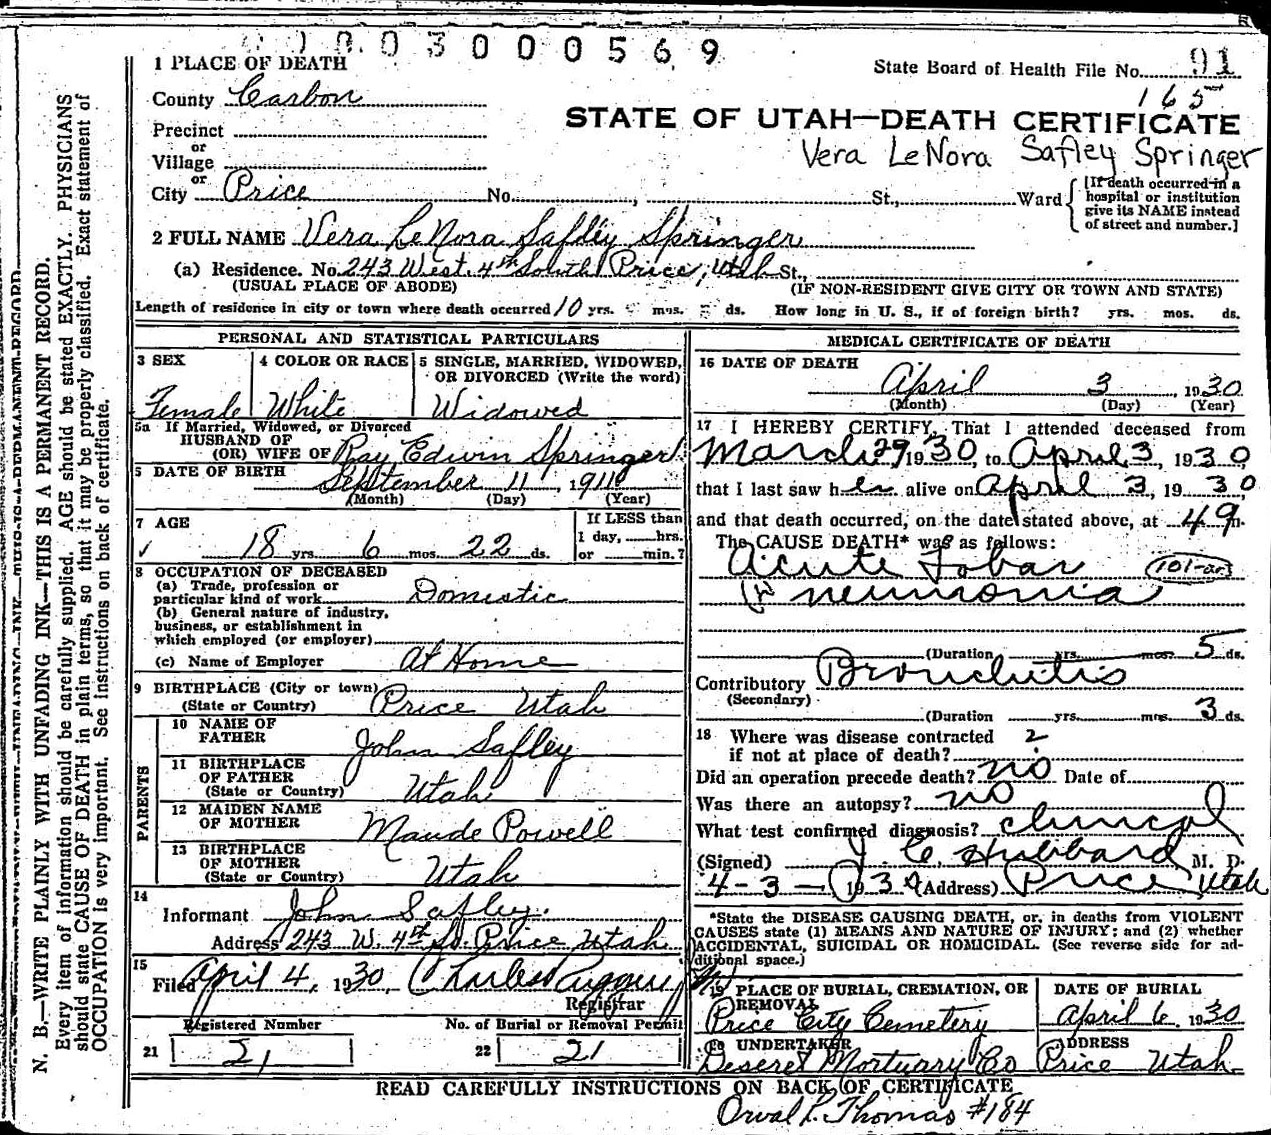 0003000569
1 PLACE OF DEATH
State Board of Health File No. 91
165
County Carbon
STATE OF UTAH—DEATH CERTIFICATE
Precinct
or
Village
or
City Price No. , St., Ward
Vera LeNora Safley Springer
[If death occurred in a
hospital or institution
give its NAME instead
of street and number.]
2 FULL NAME Vera LeNora Safley Springer
(a) Residence. No. 243 West. 4th South Price, Utah St.,
(USUAL PLACE OF ABODE) (IF NON-RESIDENT GIVE CITY OR TOWN AND STATE)
Length of residence in city or town where death occurred 10 yrs. mos. ds. How long in U. S., if of foreign birth? yrs. mos. ds.
PERSONAL AND STATISTICAL PARTICULARS
3 SEX
Female
4 COLOR OR RACE
White
5 SINGLE, MARRIED, WIDOWED,
OR DIVORCED (Write the word)
Widowed
5a If Married, Widowed, or Divorced
HUSBAND OF
(OR) WIFE OF Ray Edwin Springer
DATE OF BIRTH September 11, 1911
(Month) (Day) (Year)
7 AGE
18 yrs 6 mos. 22 ds.
If LESS than
1 day, hrs.
or min.?
8 OCCUPATION OF DECEASED
(a) Trade, profession or
particular kind of work Domestic
(b) General nature of industry,
business, or establishment in
which employed (or employer)
(c) Name of Employer At Home
9 BIRTHPLACE (City or town)
(State or Country) Price Utah
PARENTS
10 NAME OF
FATHER John Safley
11 BIRTHPLACE
OF FATHER
(State or Country) Utah
12 MAIDEN NAME
OF MOTHER Maude Powell
13 BIRTHPLACE
OF MOTHER
(State or Country) Utah
14
Informant John Safley.
Address 243 W. 4th So. Price Utah
15
Filed April 4, 1930, Charles
Registrar
Registered Number
21 21
No. of Burial or Removal Permit
22 21
MEDICAL CERTIFICATE OF DEATH
16 DATE OF DEATH
April 3, 1930
(Month) (Day) (Year)
17 I HEREBY CERTIFY, That I attended deceased from
March 29 1930, to April 3, 1930
that I last saw her alive on April 3, 1930
and that death occurred, on the date stated above, at 49 m.
The CAUSE DEATH* was as follows:
Acute Lobar
Pneumonia
(Duration yrs. mos. 5 ds.
Contributory Bronchitis
(Secondary)
(Duration yrs. mos. 3 ds.
18 Where was disease contracted
if not at place of death?
Did an operation precede death? no Date of
Was there an autopsy? no
What test confirmed diagnosis? clinical
(Signed) J. C. Hubbard M. D.
4-3- 1930 (Address) Price Utah
*State the DISEASE CAUSING DEATH, or, in deaths from VIOLENT
CAUSES state (1) MEANS AND NATURE OF INJURY; and (2) whether
ACCIDENTAL, SUICIDAL OR HOMICIDAL. (See reverse side for ad-
ditional space.)
19 PLACE OF BURIAL, CREMATION, OR
REMOVAL
Price City Cemetery
DATE OF BURIAL
April 6, 1930
20 UNDERTAKER
Deseret Mortuary Co
ADDRESS
Price Utah.
READ CAREFULLY INSTRUCTIONS ON BACK OF CERTIFICATE
Orval L. Thomas #184
N. B.—WRITE PLAINLY WITH UNFADING INK—THIS IS A PERMANENT RECORD.
Every item of information should be carefully supplied. AGE should be stated EXACTLY. PHYSICIANS
should state CAUSE OF DEATH in plain terms, so that it may be properly classified. Exact statement of
OCCUPATION is very important. See instructions on back of certificate.